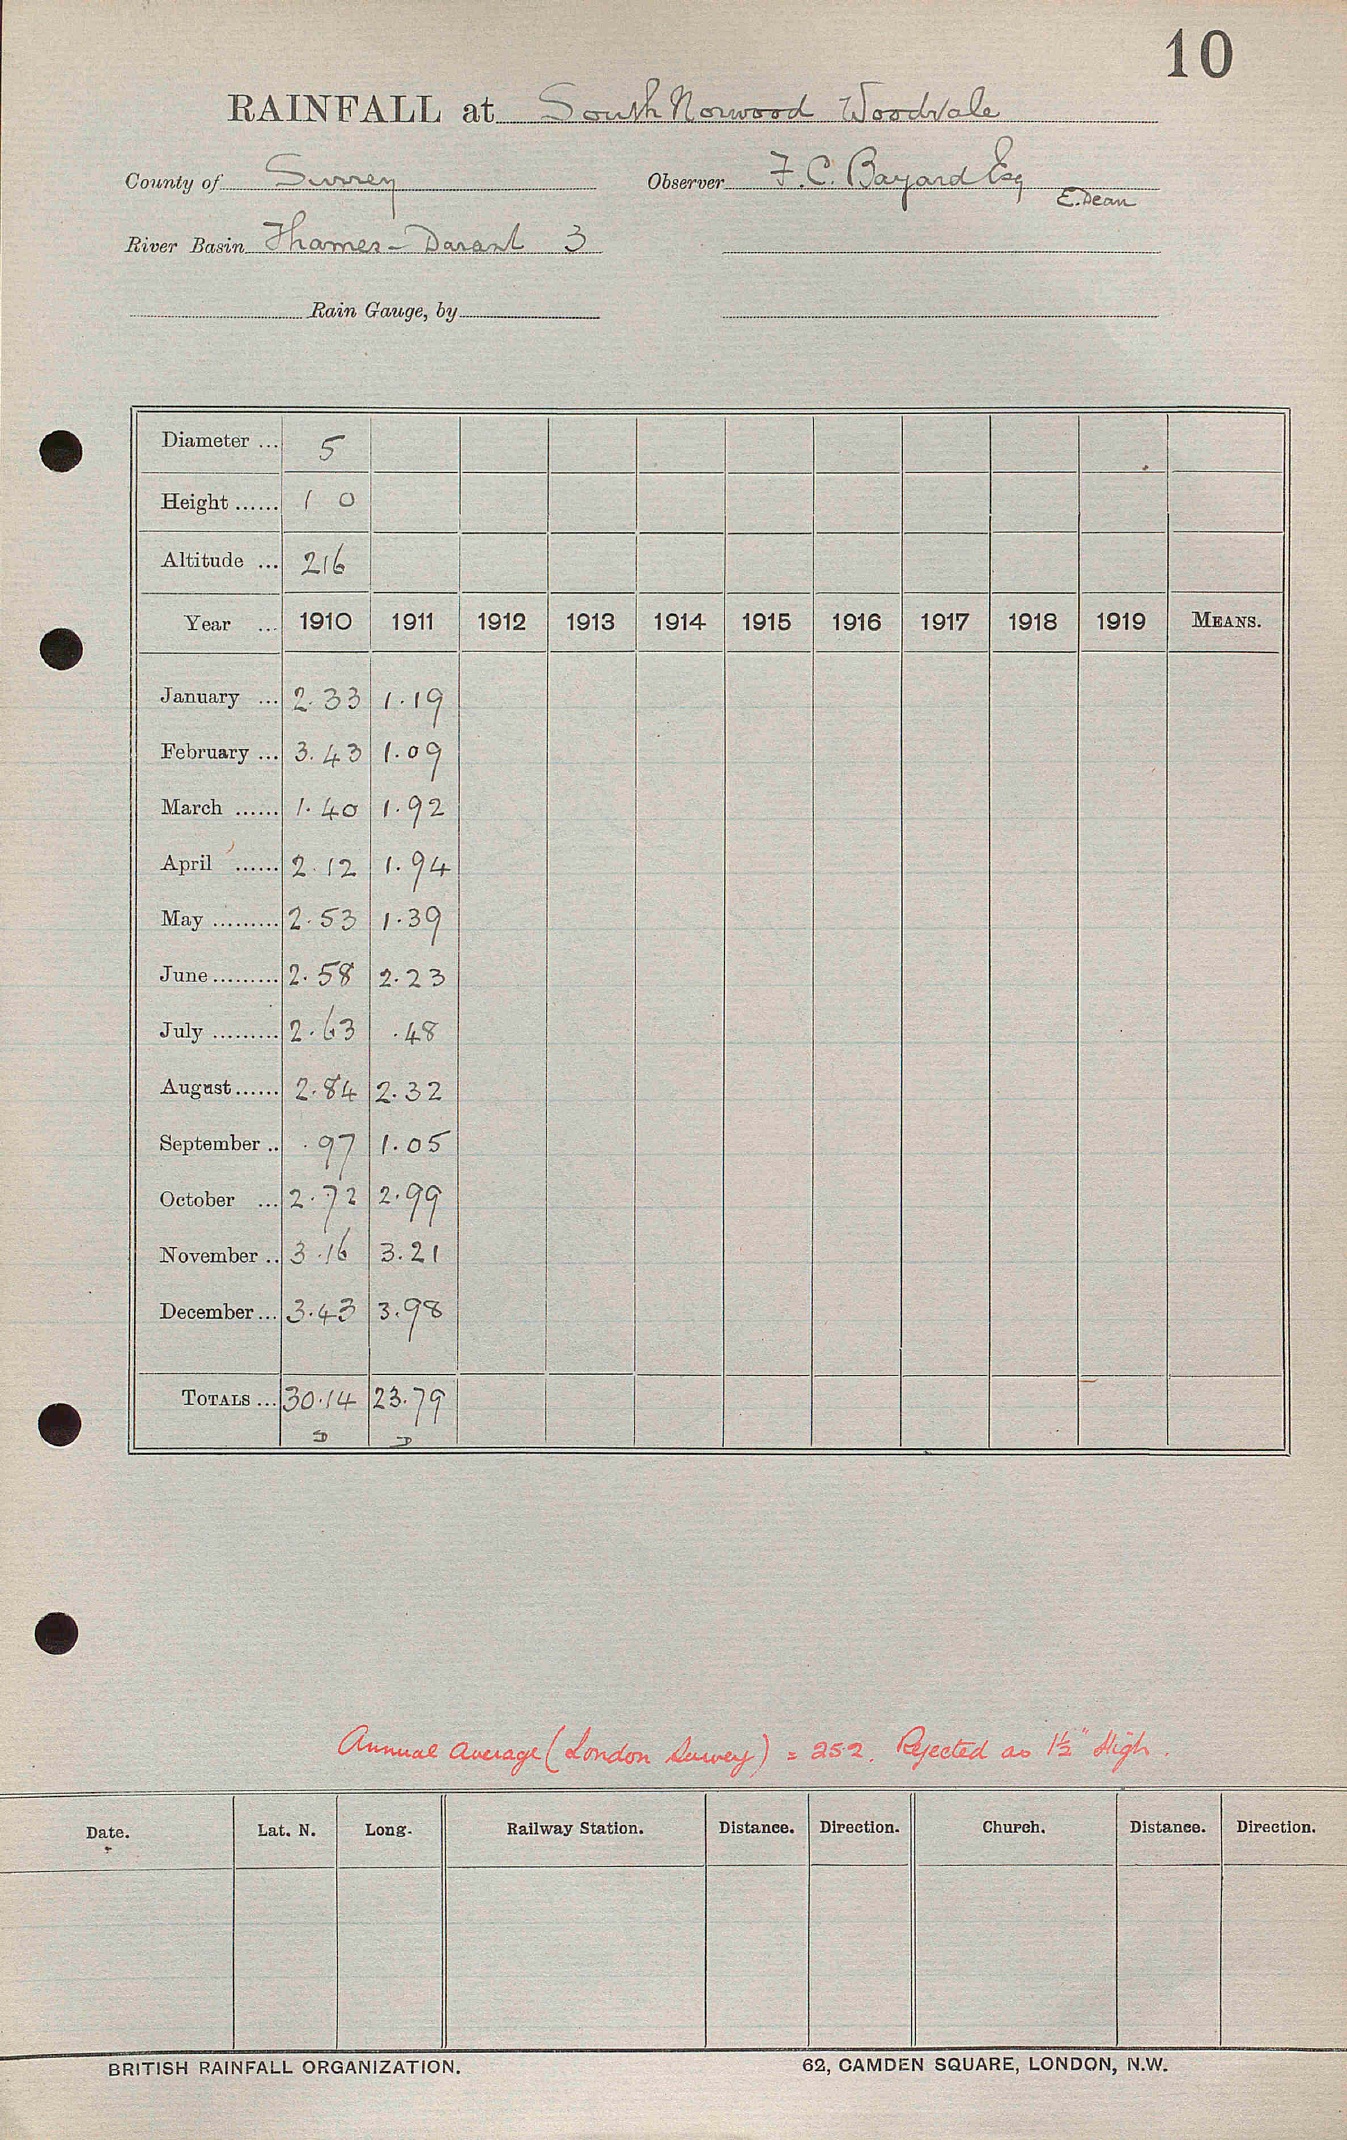 10
RAINFALL at South Norwood Woodvale
County of Surrey Observer F. C. Bayard Esq
E. Dean
River Basin Thames - Darent 3
Rain Gauge, by
Diameter ... 5
Height ...... 1 0
Altitude ... 216
Year ... 1910 1911 1912 1913 1914 1915 1916 1917 1918 1919 MEANS.
January ... 2.33 1.19
February ... 3.43 1.09
March ...... 1.40 1.92
April ...... 2.12 1.94
May ......... 2.53 1.39
June ......... 2.58 2.23
July ......... 2.63 .48
August ...... 2.84 2.32
September .. .97 1.05
October ... 2.72 2.99
November .. 3.16 3.21
December ... 3.43 3.98
TOTALS ... 30.14 23.79
Annual Average (London Survey) = 25.2. Rejected as 1½" High.
Date. Lat. N. Long. Railway Station. Distance. Direction. Church. Distance. Direction.
BRITISH RAINFALL ORGANIZATION. 62, CAMDEN SQUARE, LONDON, N.W.